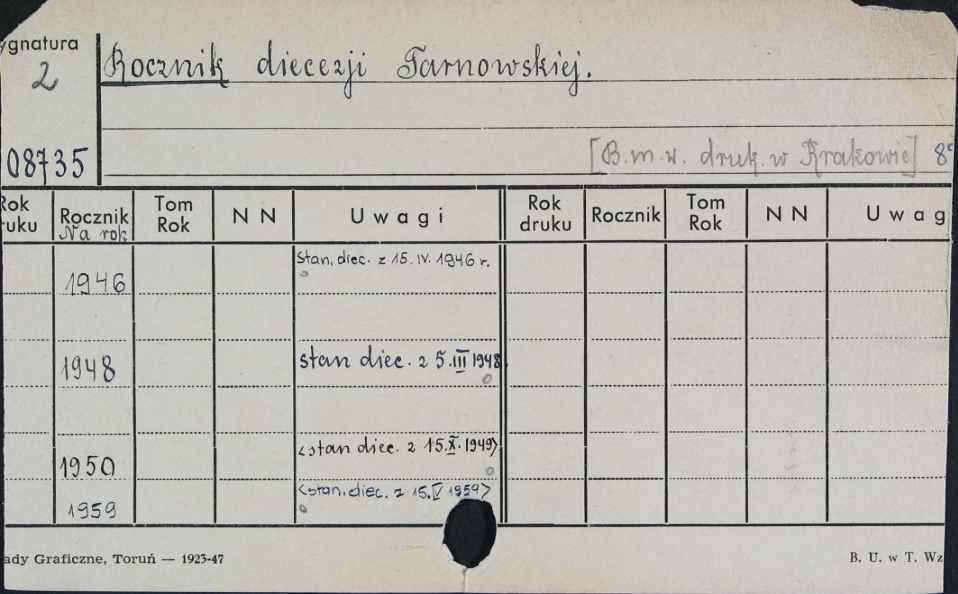 ygnatura
2
Rocznik diecezji Tarnowskiej.
08735
[B.m.w. druk. w Krakowie] 8°
Rok
uku
Rocznik
Na rok
Tom
Rok
N N
Uwagi
Rok
druku
Rocznik
Tom
Rok
N N
Uwag
1946 Stan. diec. z 15.IV. 1946 r.
1948 stan diec. z 5.III 1948
1950 <stan diec. z 15.X.1949>
1959 <stan. diec. z 15.V 1959>
ady Graficzne, Toruń — 1923-47
B. U. w T. Wz